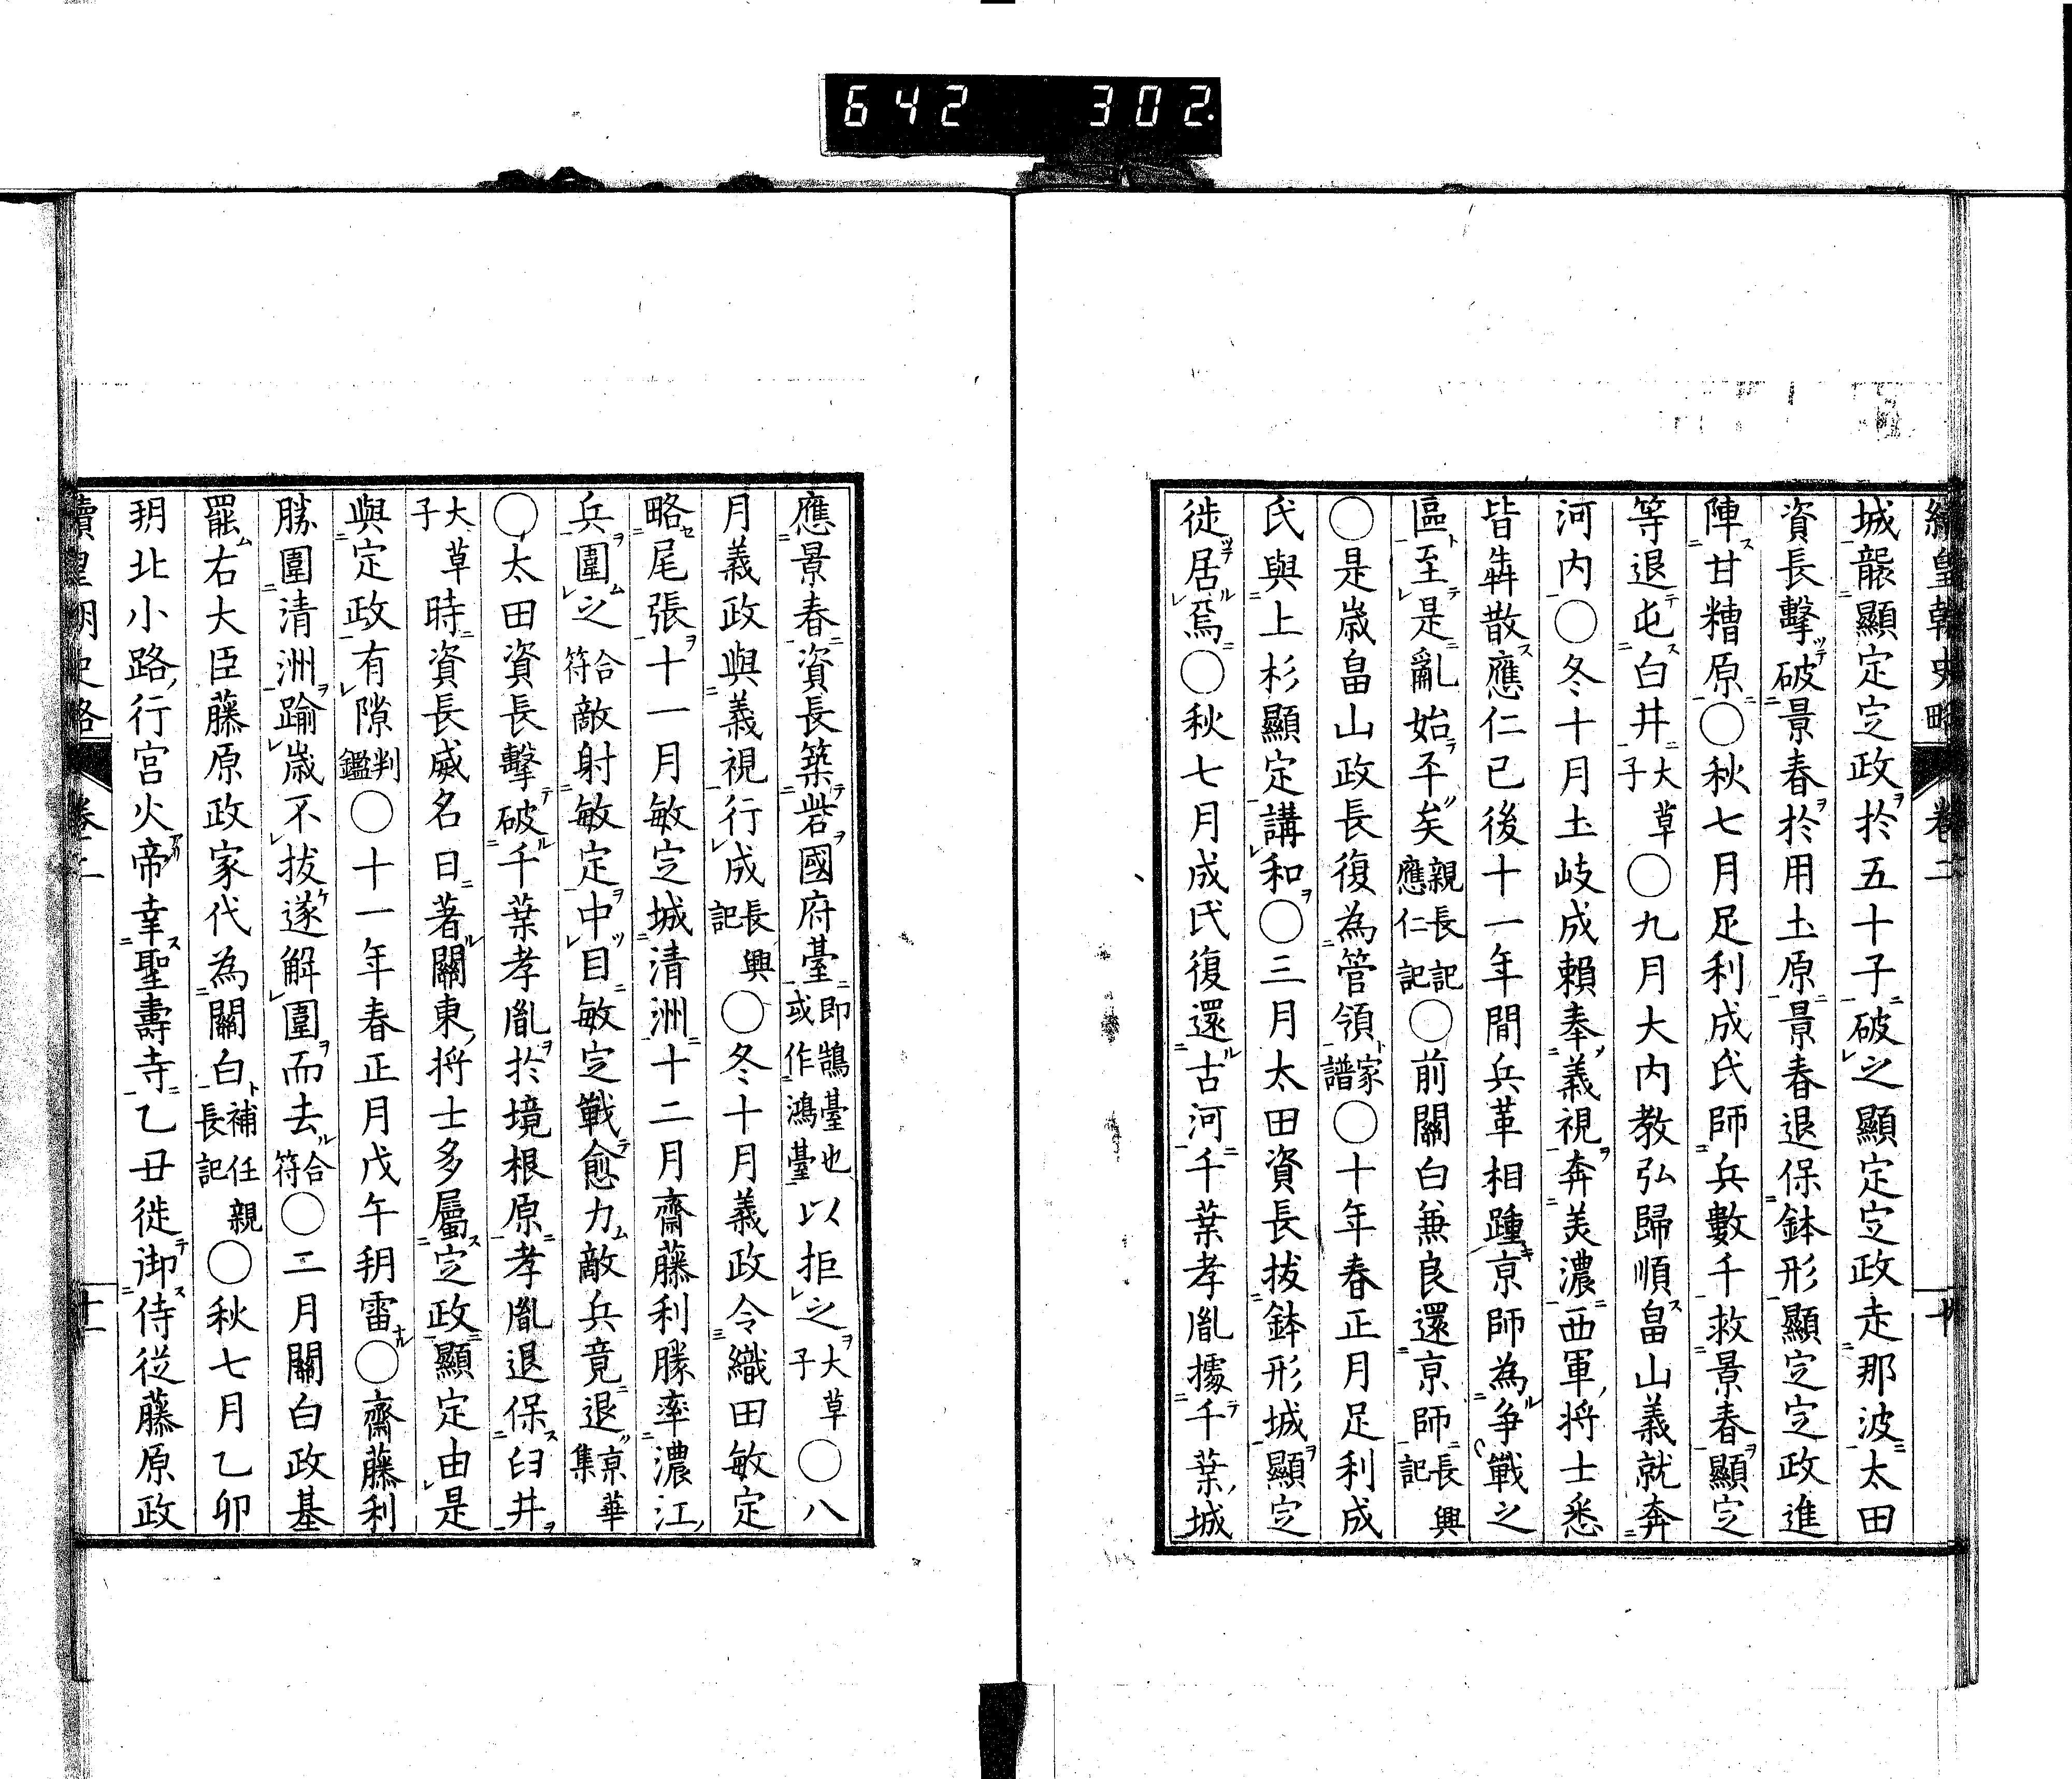 642 302.
續皇朝史略 卷二 十
城襲顯定定政於五十子破之顯定定政走那波太田
資長擊破景春於用土原景春退保鉢形顯定定政進
陣甘糟原〇秋七月足利成氏師兵數千救景春顯定
等退屯白井大草子〇九月大内教弘歸順畠山義就奔
河内〇冬十月土岐成賴奉義視奔美濃西軍將士悉
皆犇散應仁已後十一年間兵革相踵京師為爭戰之
區至是亂始平矣親長記應仁記〇前關白兼良還京師長興記
〇是歳畠山政長復為管領家譜〇十年春正月足利成
氏與上杉顯定講和〇三月太田資長拔鉢形城顯定
徙居焉〇秋七月成氏復還古河千葉孝胤據千葉城
應景春資長築砦國府臺即鵠臺也或作鴻臺以拒之大草子〇八
月義政與義視行成長興記〇冬十月義政令織田敏定
略尾張十一月敏定城清洲十二月齋藤利勝率濃江
兵圍之合符敵射敏定中目敏定戰愈力敵兵竟退京華集
〇太田資長擊破千葉孝胤於境根原孝胤退保臼井
大草子時資長威名日著關東將士多屬定政顯定由是
與定政有隙判鑑〇十一年春正月戊午朔雷〇齋藤利
勝圍清洲踰歳不拔遂解圍而去合符〇二月關白政基
罷右大臣藤原政家代為關白補任親長記〇秋七月乙卯
朔北小路行宮火帝幸聖壽寺乙丑徙御侍從藤原政
續皇朝史略 卷二 十一